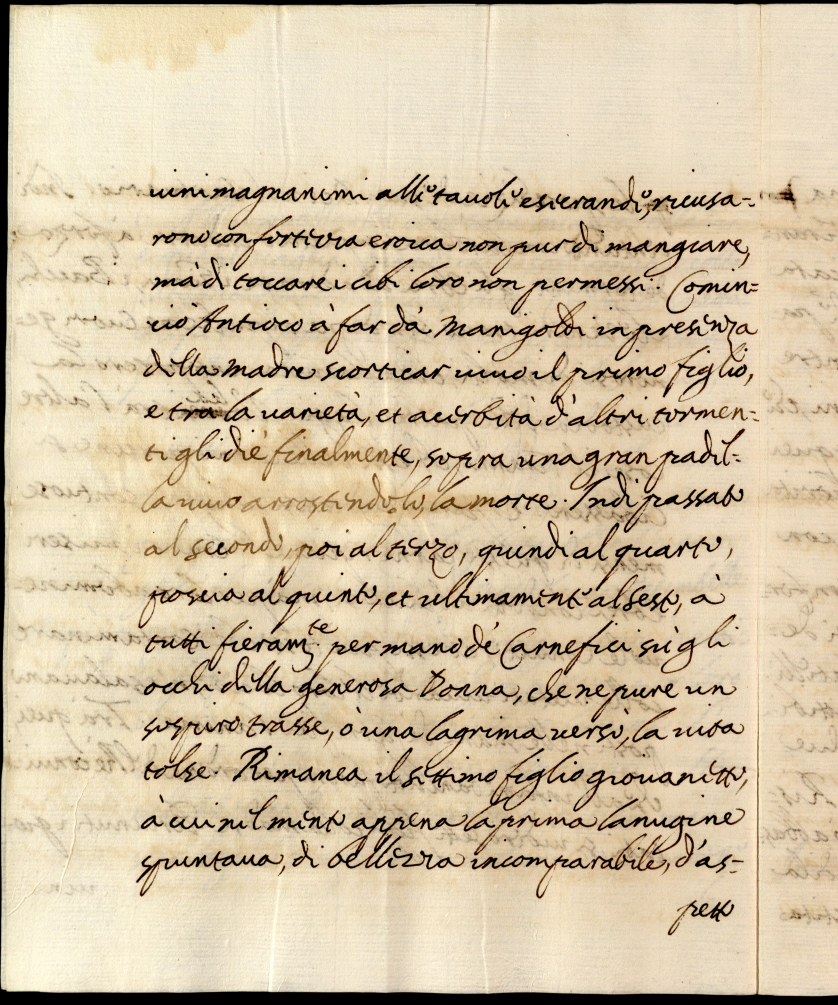 uini magnanimi alle tauole esecrande, ricusa=
rono con fortezza eroica non pur di mangiare,
mà di toccare i cibi loro non permessi. Comin=
ciò Antioco à far dà Manigoldi in presenza
della Madre scorticar uiuo il primo figlio,
e tra la uarietà, et acerbità d'altri tormen=
ti gli diè finalmente, sopra una gran padel=
la uiuo arrostendolo, la morte. Indi passato
al secondo, poi al terzo, quindi al quarto,
poscia al quinto, et ultimamente al sesto, à
tutti fieram.te per mano de' Carnefici sù gli
occhi della generosa Donna, che ne pure un
sospiro trasse, ò una lagrima uersò, la uita
tolse. Rimanea il settimo figlio giouanetto,
à cui nel mento appena la prima lanugine
spuntaua, di bellezza incomparabile, d'as=
petto